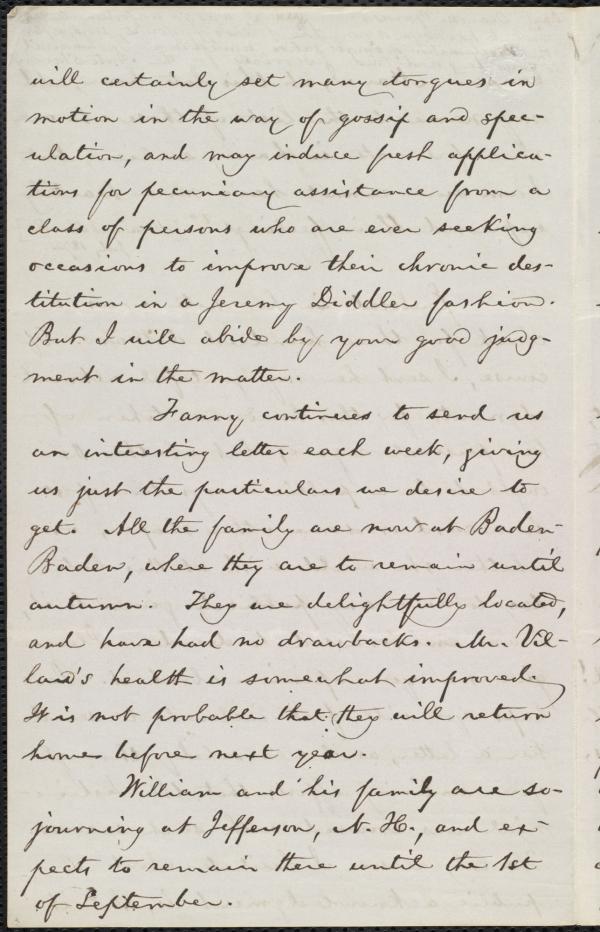 will certainly set many tongues in
motion in the way of gossip and spec-
ulation, and may induce fresh applica-
tions for pecuniary assistance from a
class of persons who are ever seeking
occasions to improve their chronic des-
titution in a Jeremy Diddler fashion.
But I will abide by your good judg-
ment in the matter.
Fanny continues to send us
an interesting letter each week, giving
us just the particulars we desire to
get. All the family are now at Baden-
Baden, where they are to remain until
autumn. They are delightfully located,
and have had no drawbacks. Mr. Vil-
lard's health is somewhat improved.
It is not probable that they will return
home before next year.
William and his family are so-
journing at Jefferson, N. H., and ex-
pects to remain there until the 1st
of September.